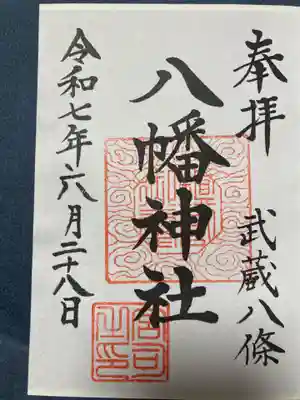 奉拝 武蔵八條
八幡神社
令和七年六月二十八日